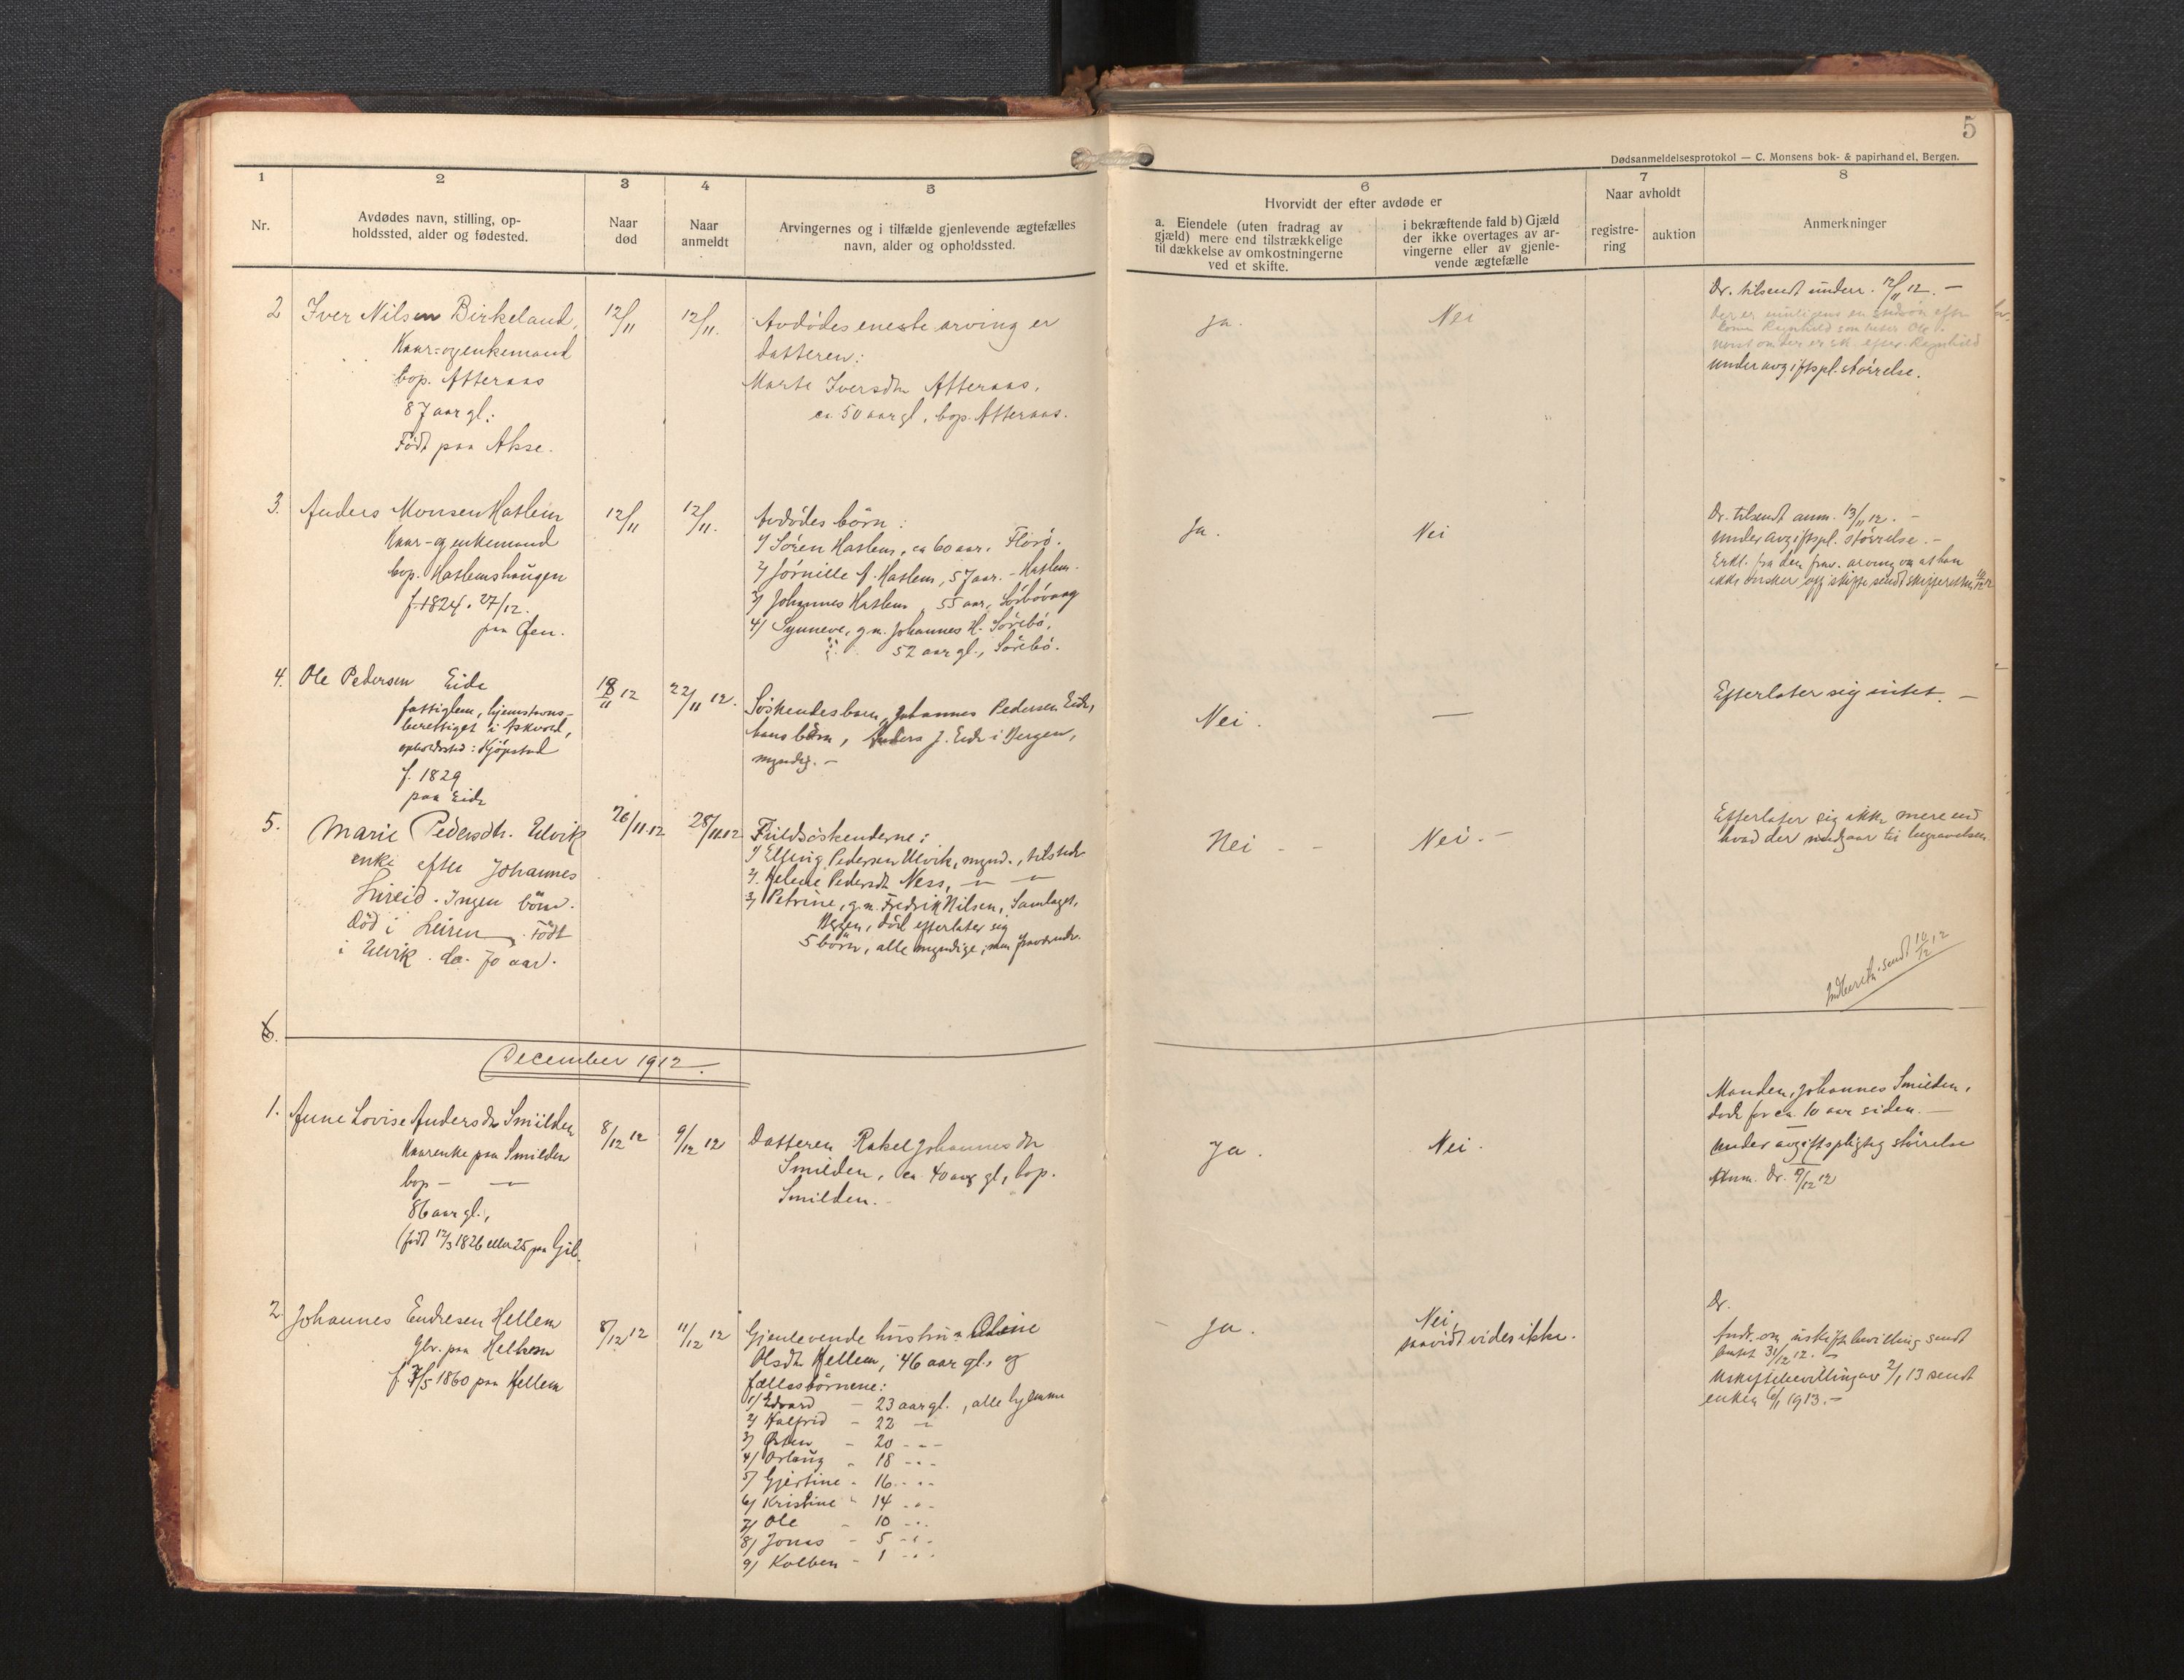 5
Dødsanmeldelsesprotokol — C. Monsens bok- & papirhandel, Bergen.
1
2
3
4
5
6
7
8
Nr.
Avdødes navn, stilling, op-
holdssted, alder og fødested.
Naar
død
Naar
anmeldt
Arvingernes og i tilfælde gjenlevende ægtefælles
navn, alder og opholdssted.
Hvorvidt der efter avdøde er
a. Eiendele (uten fradrag av
gjæld) mere end tilstrækkelige
til dækkelse av omkostningerne
ved et skifte.
i bekræftende fald b) Gjæld
der ikke overtages av ar-
vingerne eller av gjenle-
vende ægtefælle
Naar avholdt
registre-
ring
auktion
Anmerkninger
2
Iver Nilsen Birkeland,
Kaar- og enkemand
bop. Atteraas
87 aar gl.:
Født paa Akse.
12/11
12/11.
Avdødes eneste arving er
datteren:
Marte Iversdtr Atteraas,
ca. 50 aar gl, bop. Atteraas.
Ja.
Nei
Dr. tilsendt underr. 12/11 12. —
under avgiftspl. størrelse.
3.
Anders Monsen Hatlem
Kaar- og enkemand
bop. Hatlemshaugen
f. 1824. 27/12.
paa Øen.
12/11
12/11.
Avdødes børn:
1/ Søren Hatlem, ca 60 aar. Florø.
2/ Jørnille A. Hatlem, 57 aar. - Hatlem.
3/ Johannes Hatlem 55 aar, Sørbøvaag
4/ Synneve, g.m. Johannes H. Sørebø,
52 aar gl., Sørebø.
Ja.
Nei
Dr. tilsendt anm. 13/11 12. —
under avgiftspl. størrelse. —
Erkl. fra den frav. arving om at han
ikke ønsker off. skifte sendt skifteretten
4.
Ole Pedersen Eide
fattiglem, hjemstavns-
berettiget i Askvold,
opholdssted: Kjøpstad
f. 1829
paa Eide
18/11 12
22/11 12.
Søskendebarn, Johannes Pedersen Eide,
hans børn, Anders J. Eide i Bergen,
myndig. —
Nei.
—
Efterlater sig intet. —
5.
Marie Pedersdtr. Ulvik
enke efter Johannes
Lureid. Ingen børn.
Død i Leiren. Født
i Ulvik. ca. 70 aar.
26/11.12
28/11.12
Fuldsøskenderne:
1/ Elling Pedersen Ulvik, mynd., tilstede
2/ Helene Pedersdt Ness, — —
3/ Petrine, g.m. Fredrik Nilsen, Samlaget,
Bergen, død efterlater sig
5 børn, alle myndige, men fraværende.
Nei - -
Nei. —
Efterlater sig ikke mere end
hvad der medgaar til begravelsen.
Indberetn. sendt 10/12 12
6.
December 1912.
1.
Anne Lovise Andersdtr Smilden
Kaarenke paa Smilden
bop — —
86 aar gl.,
(født 12/3 1826 eller 25 paa
8/12 12
9/12 12
Datteren Rakel Johannesdtr
Smilden, ca. 40 aar gl, bop.
Smilden.
Ja.
Nei.
Manden, Johannes Smilden,
døde for ca. 10 aar siden. —
under avgiftspligtig størrelse
Anm. Dr. 9/12 12
2.
Johannes Endresen Hellem
Gbr. paa Hellem
f. 7/5 1860 paa Hellem
8/12 12
11/12 12
Gjenlevende hustru: Oline
Olsdtr Hellem, 46 aar gl., og
fællesbørnene:
1/ Edvard — 23 aar gl., alle hjemme
2/ Halfrid — 22 —
3/ Østen — 20 - - -
4/ Orlaug - 18 - - -
5/ Gjertine - 16 - - -
6/ Kristine - 14 - - -
7/ Ole - 10 - - -
8/ Jonas - 5 - - -
9/ Kolben - 1 - - -
Ja.
Nei,
saavidt vides ikke.
Dr.
Andr. om uskiftebevilling sendt
amtet 31/12 12. —
Uskiftebevilling av 2/1 13 sendt
enken 6/1 1913. —